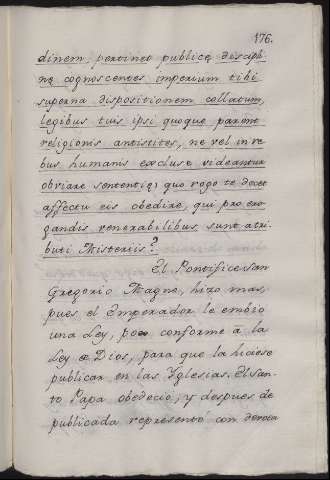 176.
dinem pertinet publicę discipli-
nę cognoscentes imperium tibi
superna dispositionem collatum,
legibus tuis ipsi quoque parent
religionis antistites, ne vel in re-
bus humanis excluse videantur
obviare sententię; quo rogo te decet
affectu eis obedire, qui pro ero-
gandis venerabilibus sunt atri-
buti Misteriis?
El Pontifice San
Gregorio Magno, hizo mas,
pues el Emperador le embió
una Ley, poco conforme a la
Ley de Dios, para que la hiciese
publicar en las Yglesias. El San-
to Papa obedeció, y despues de
publicada representó con decoro